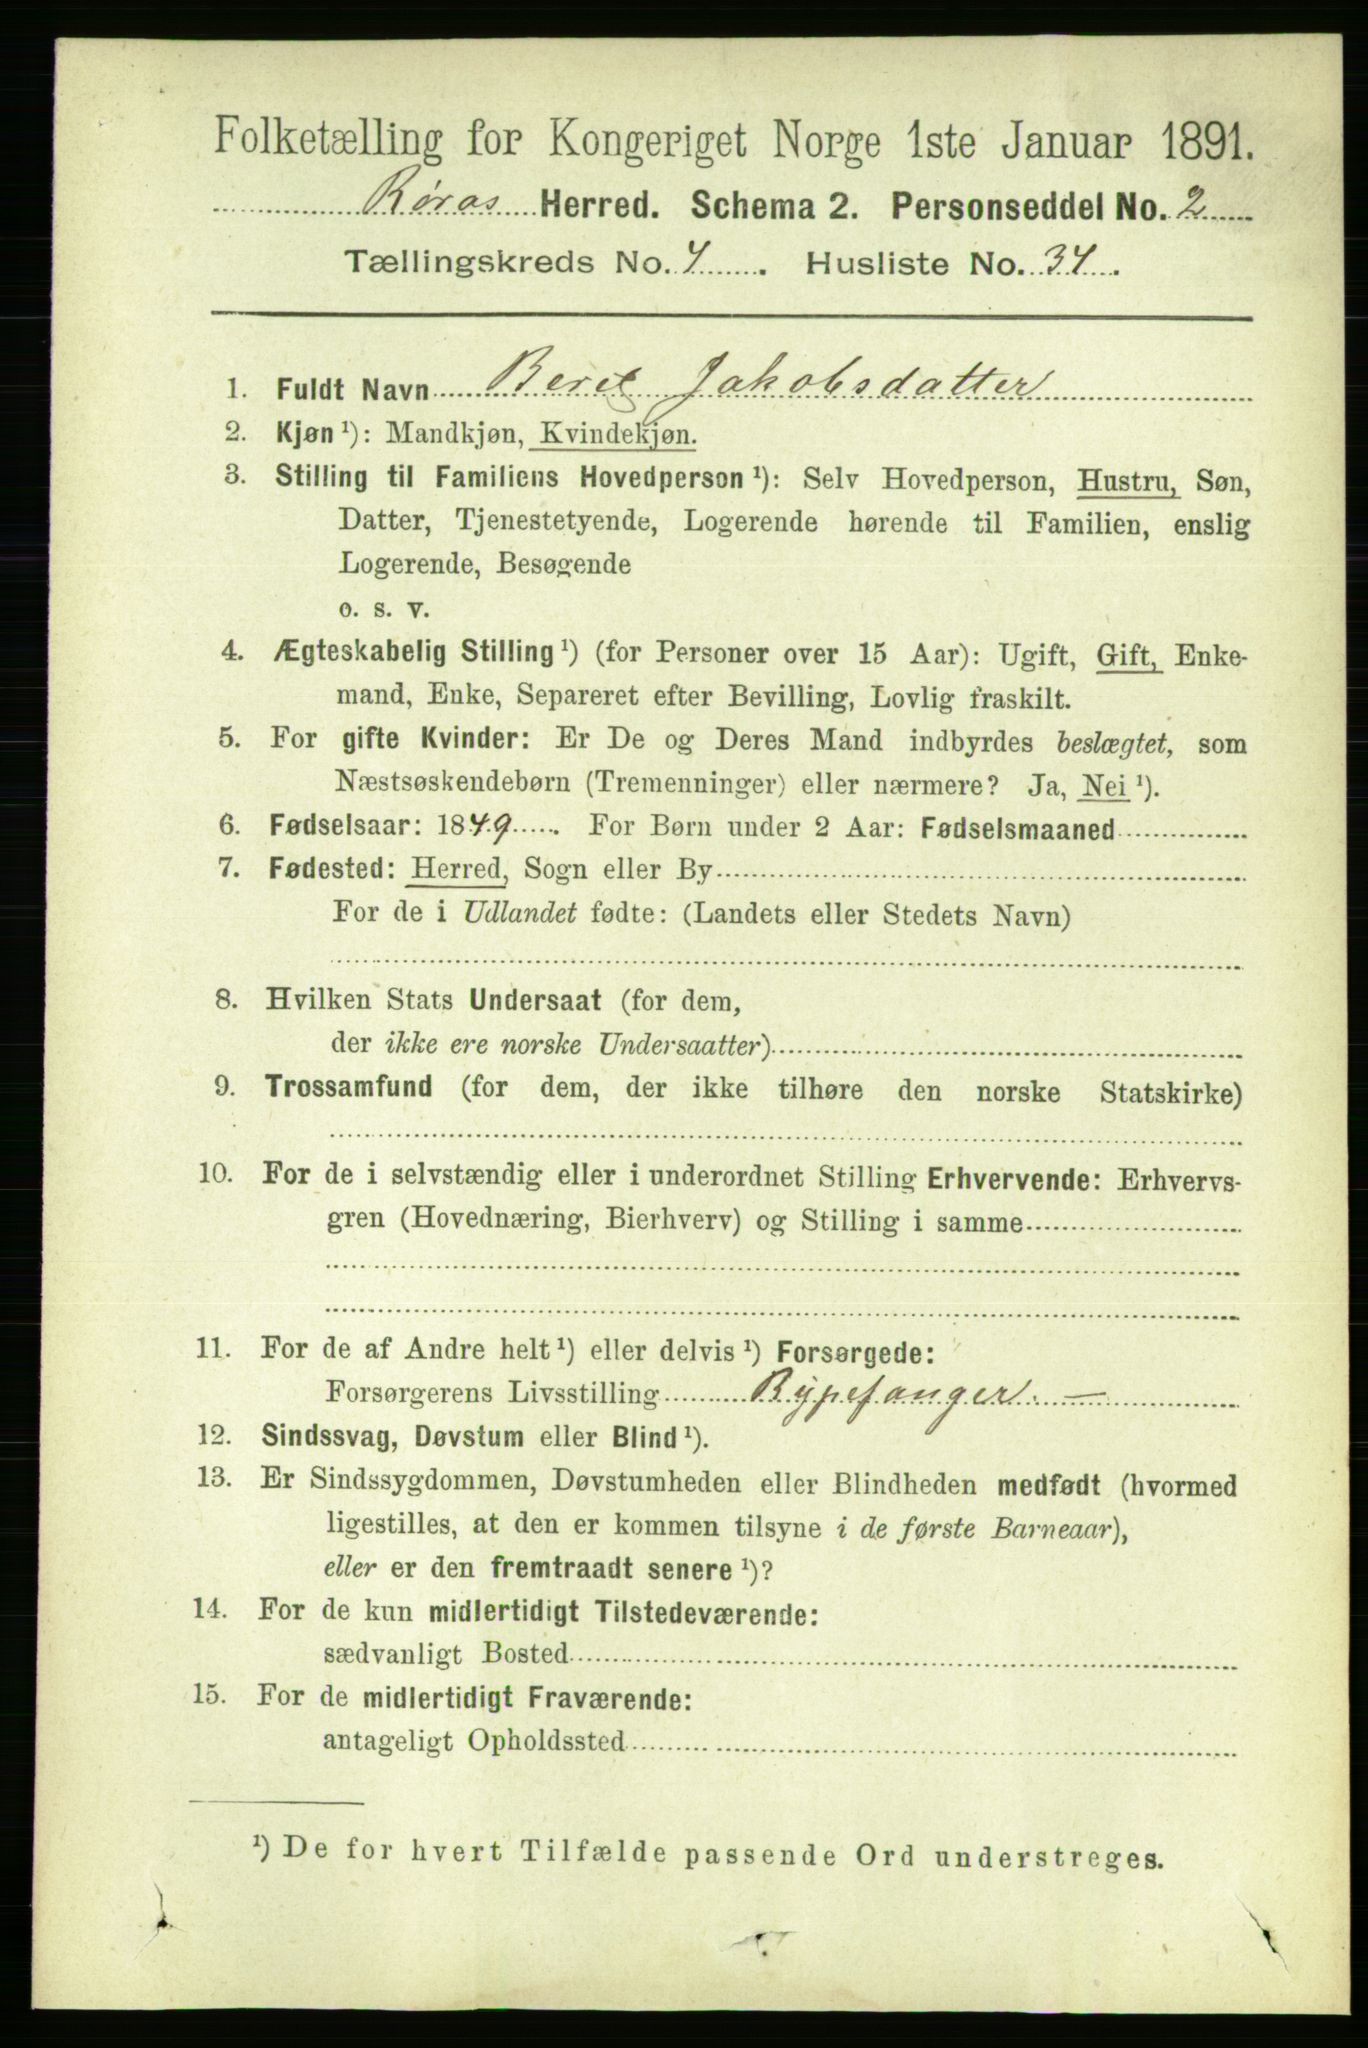 Folketælling for Kongeriget Norge 1ste Januar 1891.
Røros Herred. Schema 2. Personseddel No. 2
Tællingskreds No. 4. Husliste No. 34.
1. Fuldt Navn Beret Jakobsdatter
2. Kjøn ¹): Mandkjøn, Kvindekjøn.
3. Stilling til Familiens Hovedperson ¹): Selv Hovedperson, Hustru, Søn,
Datter, Tjenestetyende, Logerende hørende til Familien, enslig
Logerende, Besøgende
o. s. v.
4. Ægteskabelig Stilling ¹) (for Personer over 15 Aar): Ugift, Gift, Enke-
mand, Enke, Separeret efter Bevilling, Lovlig fraskilt.
5. For gifte Kvinder: Er De og Deres Mand indbyrdes beslægtet, som
Næstsøskendebørn (Tremenninger) eller nærmere? Ja, Nei ¹).
6. Fødselsaar: 1849. For Børn under 2 Aar: Fødselsmaaned
7. Fødested: Herred, Sogn eller By
For de i Udlandet fødte: (Landets eller Stedets Navn)
8. Hvilken Stats Undersaat (for dem,
der ikke ere norske Undersaatter)
9. Trossamfund (for dem, der ikke tilhøre den norske Statskirke)
10. For de i selvstændig eller i underordnet Stilling Erhvervende: Erhvervs-
gren (Hovednæring, Bierhverv) og Stilling i samme
11. For de af Andre helt ¹) eller delvis ¹) Forsørgede:
Forsørgerens Livsstilling Rypefanger. —
12. Sindssvag, Døvstum eller Blind ¹).
13. Er Sindssygdommen, Døvstumheden eller Blindheden medfødt (hvormed
ligestilles, at den er kommen tilsyne i de første Barneaar),
eller er den fremtraadt senere ¹)?
14. For de kun midlertidigt Tilstedeværende:
sædvanligt Bosted
15. For de midlertidigt Fraværende:
antageligt Opholdssted
¹) De for hvert Tilfælde passende Ord understreges.